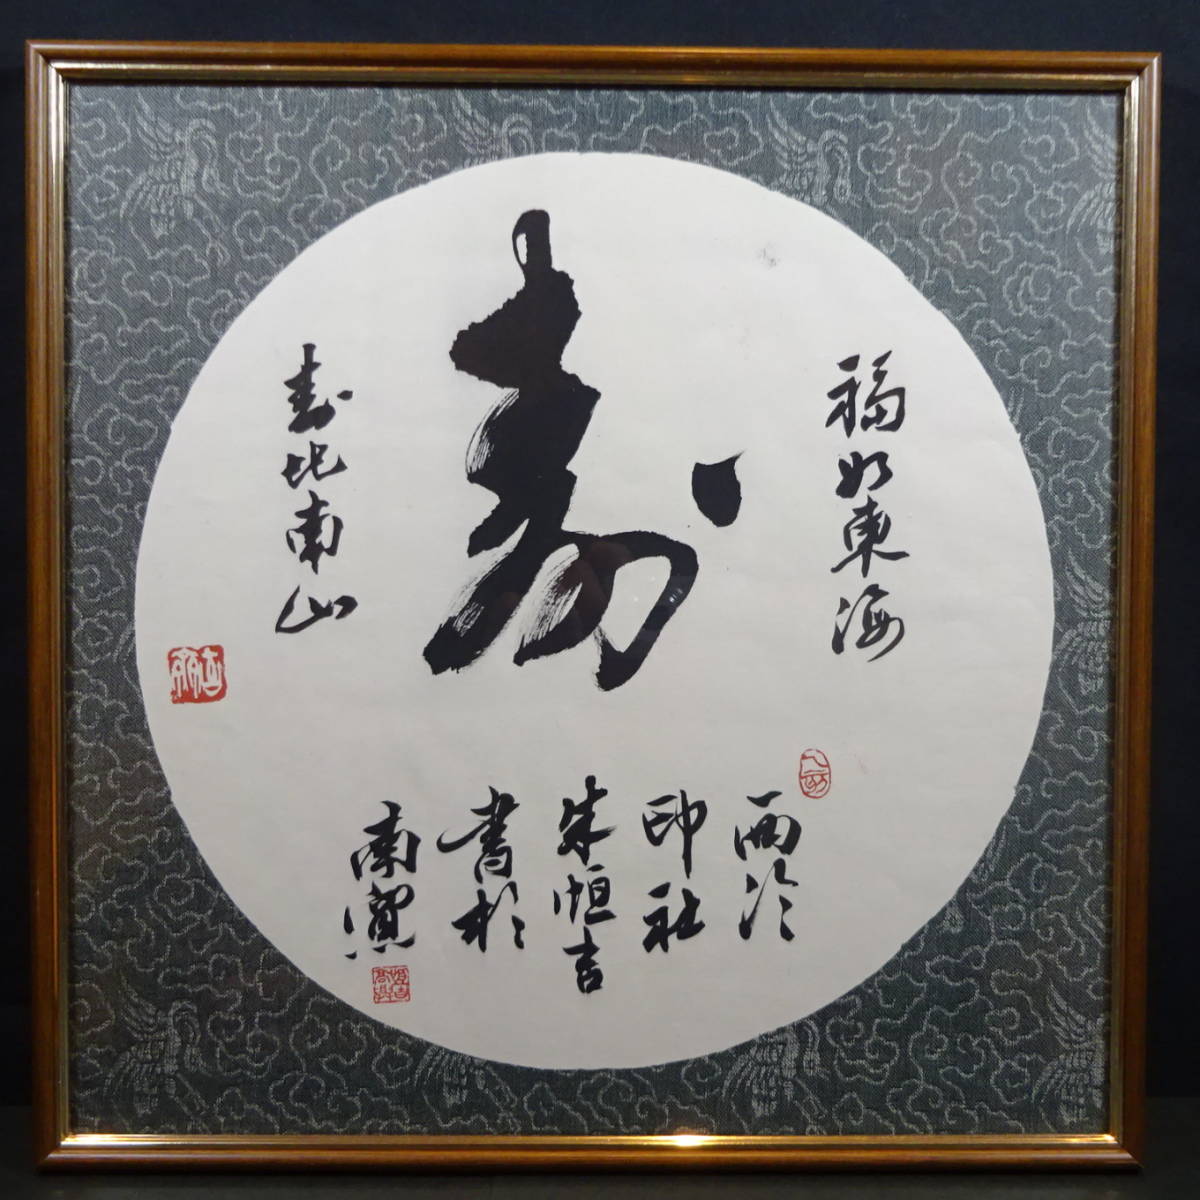 福如東海
寿
寿比南山
西泠
印社
朱恒吉
書於
南窗